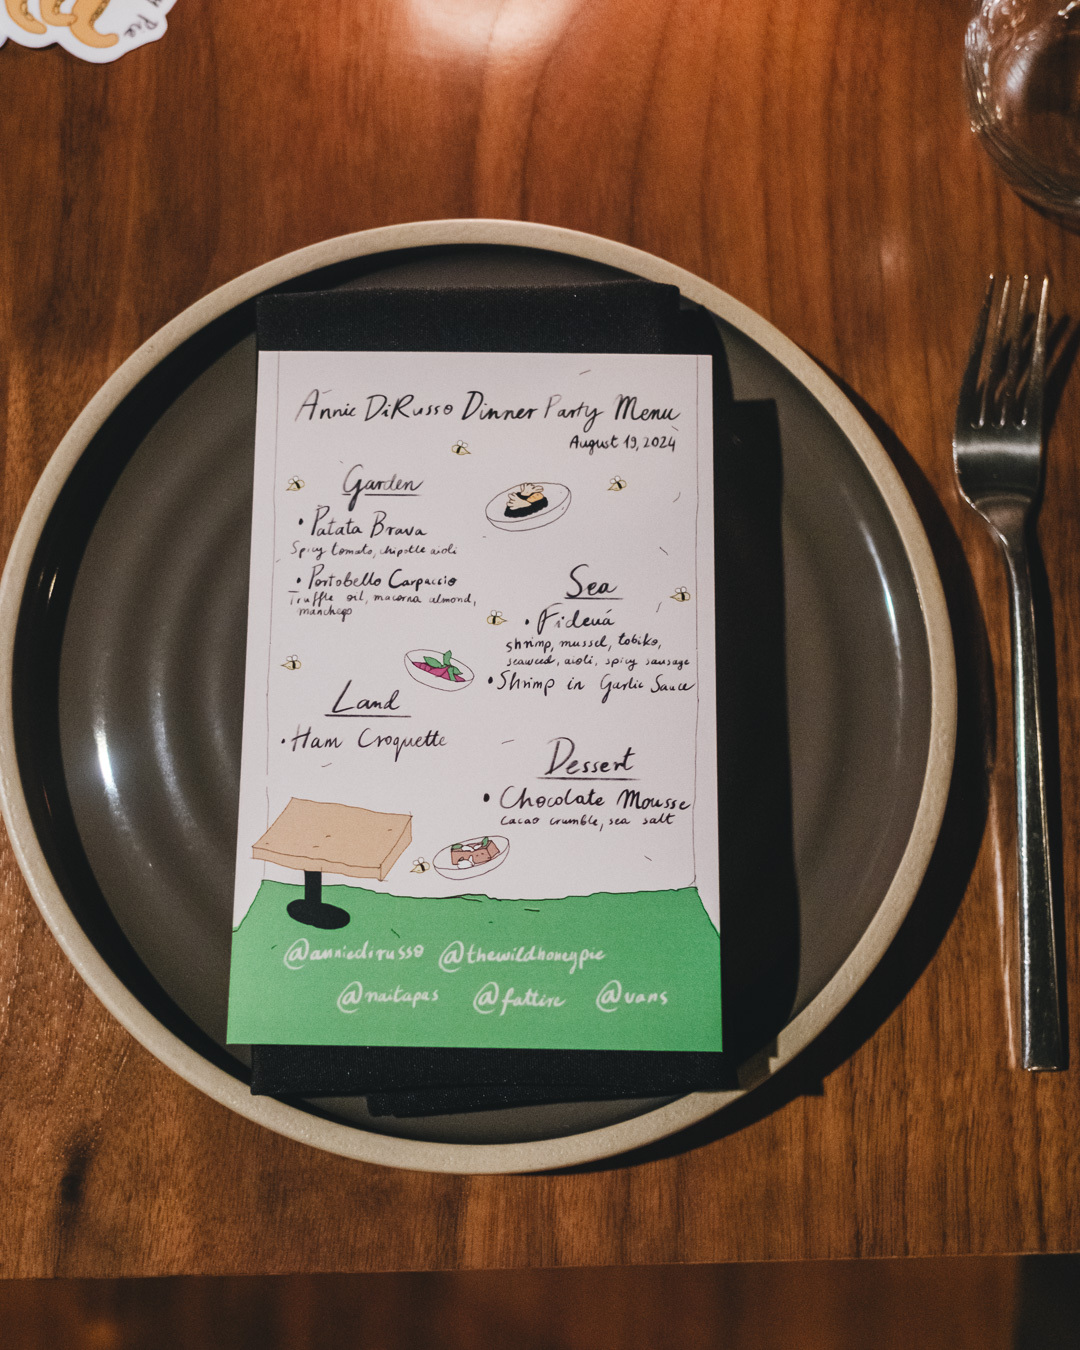 Pie
Annie DiRusso Dinner Party Menu
August 19, 2024
Garden
• Patata Brava
Spicy tomato, chipotle aioli
• Portobello Carpaccio
Truffle oil, macorna almond,
manchego
Sea
• Fideuá
shrimp, mussel, tobiko,
seaweed, aioli, spicy sausage
• Shrimp in Garlic Sauce
Land
• Ham Croquette
Dessert
• Chocolate Mousse
Cacao crumble, sea salt
@anniedirusso @thewildhoneypie
@naitapas @fattire @vans